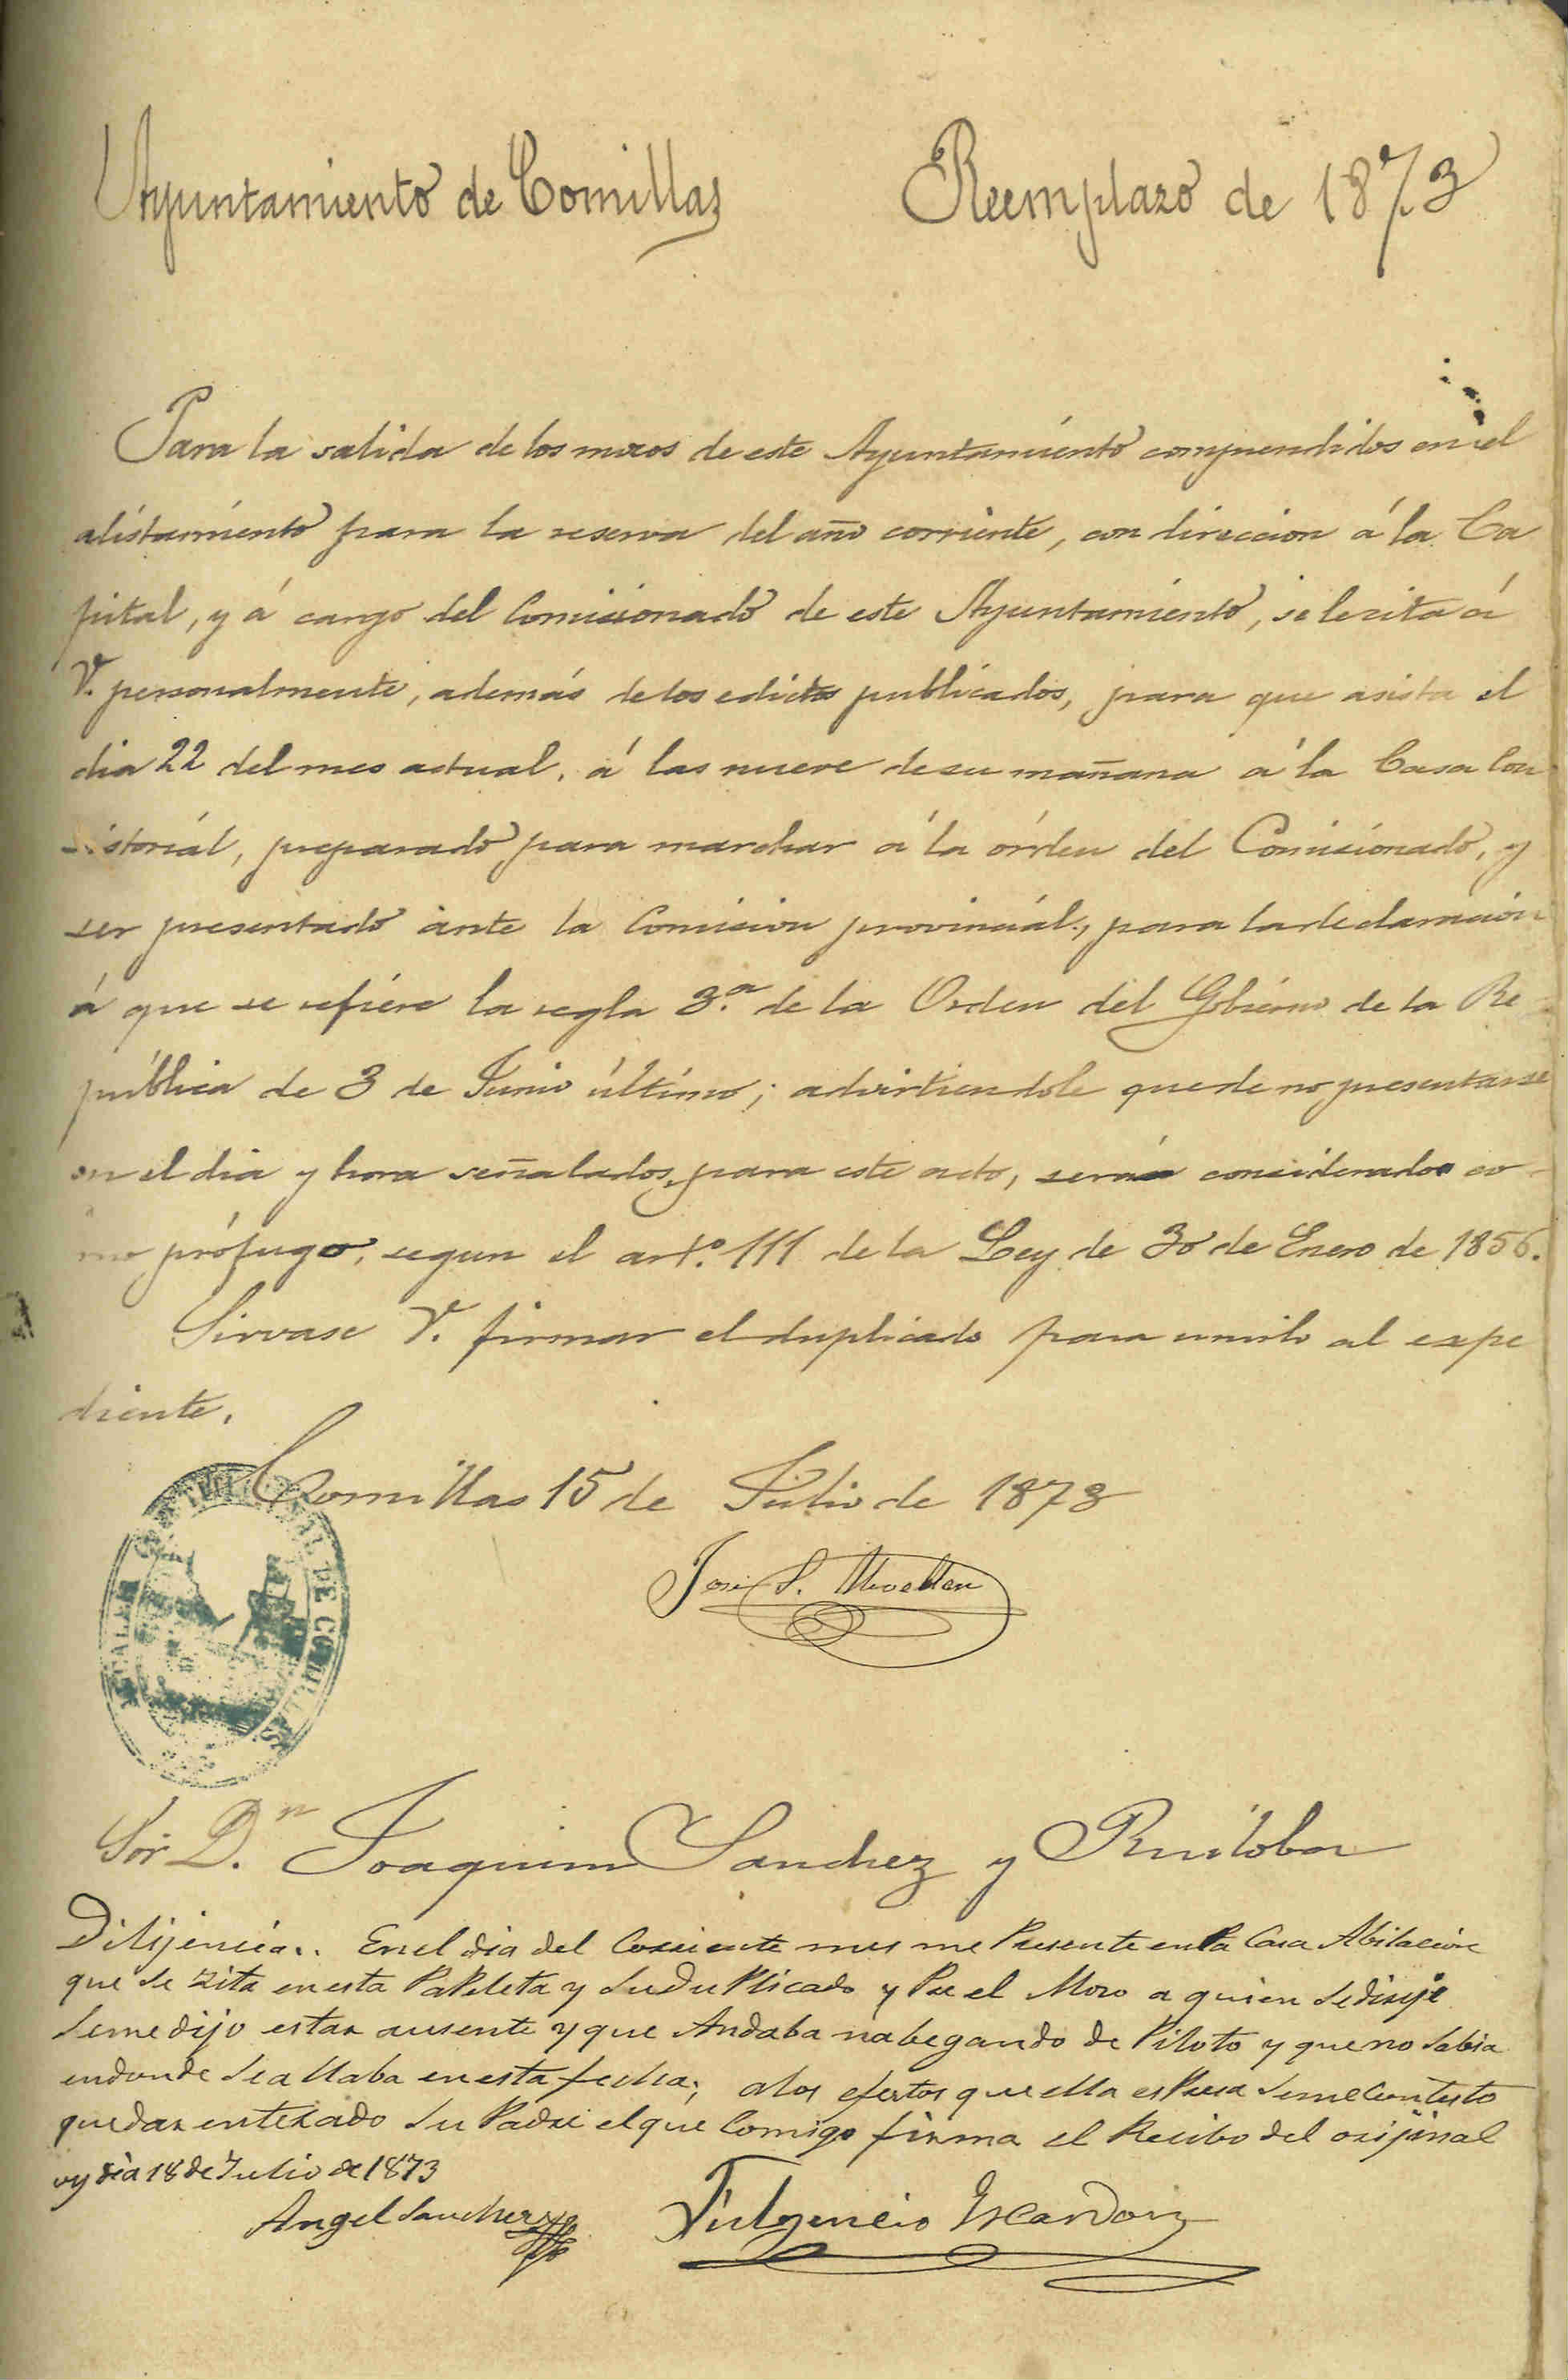 Ayuntamiento de Comillas Reemplazo de 1873
Para la salida de los mozos de este Ayuntamiento comprendidos en el
alistamiento para la reserva del año corriente, con direccion á la Ca
pital, y á cargo del Comisionado de este Ayuntamiento, se le cita á
V. personalmente, además de los edictos publicados, para que asista el
dia 22 del mes actual, á las nueve de su mañana á la Casa Con
sistorial, preparado para marchar á la órden del Comisionado, y
ser presentado ante la Comision provincial, para la declaracion
á que se refiere la regla 3.ª de la Orden del Gobierno de la Re
pública de 3 de Junio último; advirtiendole que de no presentarse
en el dia y hora señalados para este acto, será considerado co
mo prófugo, segun el art.º 111 de la Ley de 30 de Enero de 1856.
Sirvase V. firmar el duplicado para unirlo al expe
diente.
Comillas 15 de Julio de 1873
José S. Movellan
ALCALDIA DE COMILLAS
Sor. D.n Joaquin Sanchez y Ruiloba
Dilijencia.. En el dia del Coriente mes me Presente en la Casa Abitacion
que se zita en esta Papeleta y su duplicado y Por el Mozo a quien se dirije
se me dijo estar ausente y que Andaba nabegando de Piloto y que no sabia
endonde se allaba en esta fecha; alos efectos que ella espresa se me Contesto
quedar enterado su Padre el que Comigo firma el Recibo del orijinal
oy dia 18 de Julio de 1873
Angel Sanchez Fulgencio Iscandon